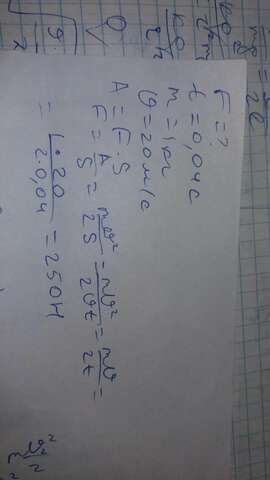 F = ?
t = 0,04 с
m = 1 кг
υ = 20 м/с
A = F · S
F = A/S = mυ²/2S = mυ²/2υt = mυ/2t =
= 1·20/2·0,04 = 250 Н